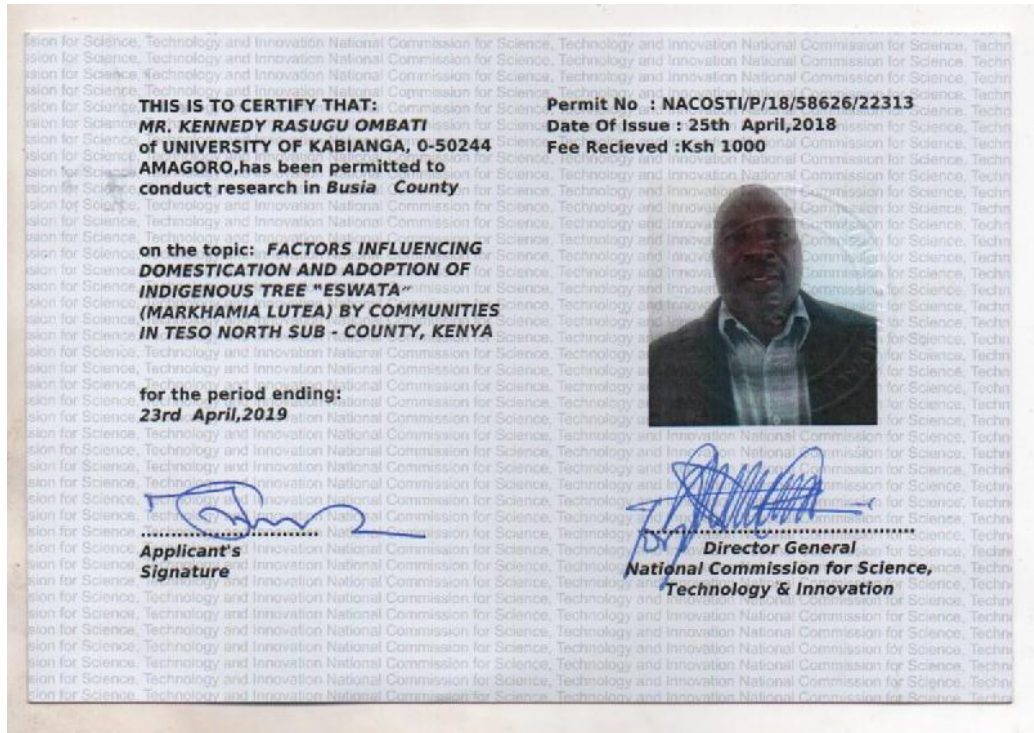 THIS IS TO CERTIFY THAT:
MR. KENNEDY RASUGU OMBATI
of UNIVERSITY OF KABIANGA, 0-50244
AMAGORO,has been permitted to
conduct research in Busia County
on the topic: FACTORS INFLUENCING
DOMESTICATION AND ADOPTION OF
INDIGENOUS TREE "ESWATA"
(MARKHAMIA LUTEA) BY COMMUNITIES
IN TESO NORTH SUB - COUNTY, KENYA
for the period ending:
23rd April,2019
Applicant's
Signature
Permit No : NACOSTI/P/18/58626/22313
Date Of Issue : 25th April,2018
Fee Recieved :Ksh 1000
for
Director General
National Commission for Science,
Technology & Innovation